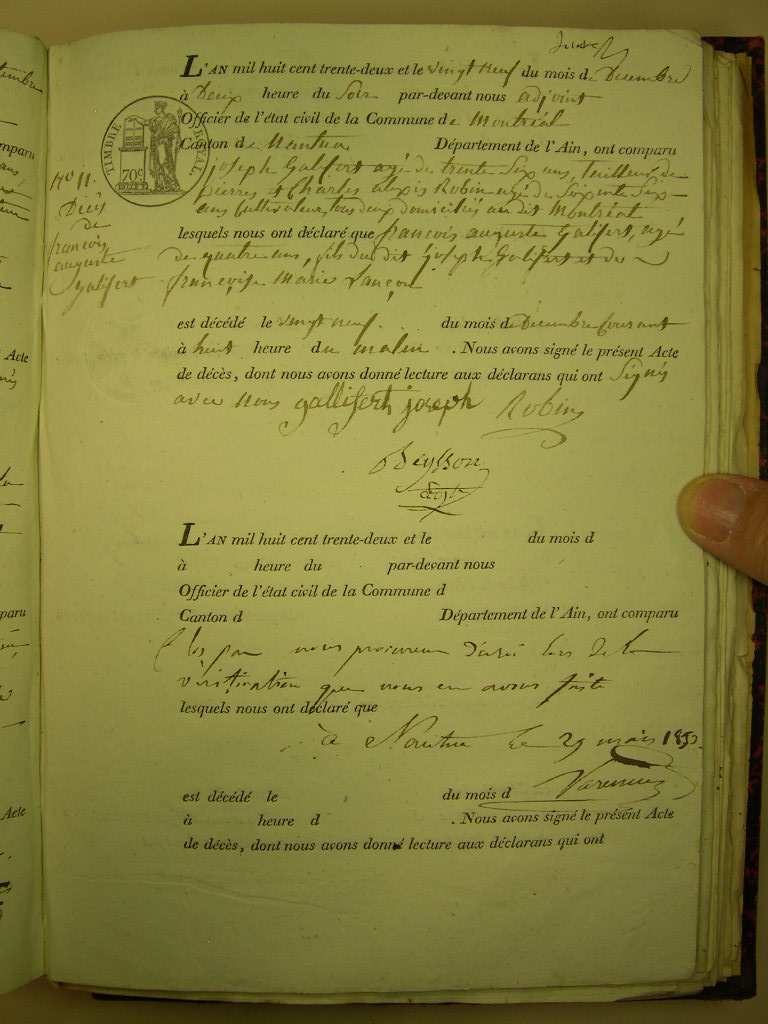 L'AN mil huit cent trente-deux et le vingt neuf du mois de Decembre
à Deux heure du Soir par-devant nous adjoint
Officier de l'état civil de la Commune de Montréal
Canton de Nantua Département de l'Ain, ont comparu
joseph Galifert agé de trente Six ans, tailleur de
pierres et Charles alexis Robin agé de Soixante Six
ans Cultivateur, tous deux domiciliés au dit Montréal
lesquels nous ont déclaré que françois auguste Galifert, agé
de quatre ans, fils du dit joseph Galifert et de
françoise Marie
est décédé le vingt neuf du mois de Decembre Courant
à huit heure du matin . Nous avons signé le présent Acte
de décès, dont nous avons donné lecture aux déclarans qui ont Signés
avec nous gallifert joseph Robin
adjt
N° 11.
Décès
de
françois
auguste
galifert
TIMBRE ROYAL
70c
L'AN mil huit cent trente-deux et le du mois d
à heure du par-devant nous
Officier de l'état civil de la Commune d
Canton d Département de l'Ain, ont comparu
Clos par nous procureur du roi lors de la
vérification que nous en avons faite
lesquels nous ont déclaré que
à Nantua le 29 mars
est décédé le du mois d
à heure d . Nous avons signé le présent Acte
de décès, dont nous avons donné lecture aux déclarans qui ont
Acte
Acte